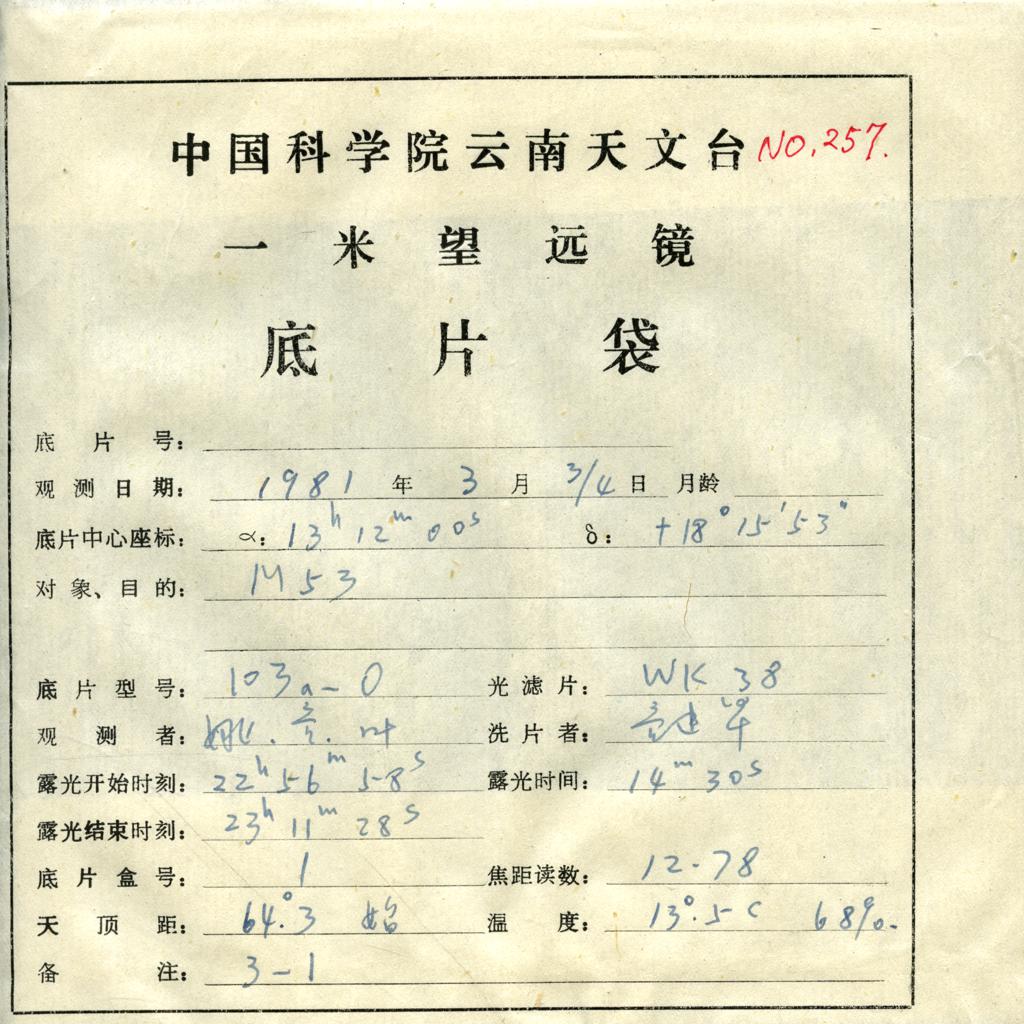 中国科学院云南天文台 NO.257.
一米望远镜
底片袋
底片号：
观测日期： 1981 年 3 月 3/4 日 月龄
底片中心座标： α： 13h 12m 00s δ： +18° 15′ 53″
对象、目的： M53
底片型号： 103a-O 光滤片： WK 38
观测者： 姚. 叶 洗片者：
露光开始时刻： 22h 56m 58s 露光时间： 14m 30s
露光结束时刻： 23h 11m 28s
底片盒号： 1 焦距读数： 12.78
天顶距： 64°.3 始 温度： 13°.5 C 68%.
备注： 3-1